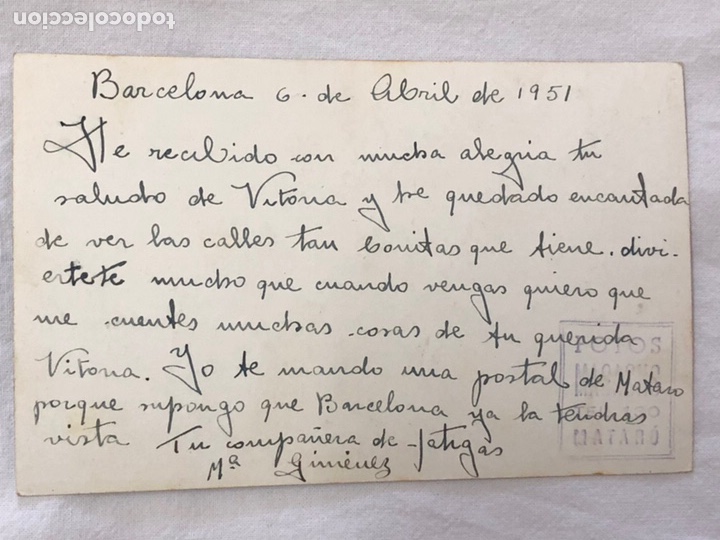 todocoleccion
Barcelona 6. de Abril de 1951
He recibido con mucha alegria tu
saludo de Vitoria y he quedado encantada
de ver las calles tan bonitas que tiene. divi-
ertete mucho que cuando vengas quiero que
me cuentes muchas cosas de tu querida
Vitoria. Yo te mando una postal de Mataro
porque supongo que Barcelona ya la tendras
vista Tu compañera de fatigas
Mª Gimenez
FOTOS
MATARÓ